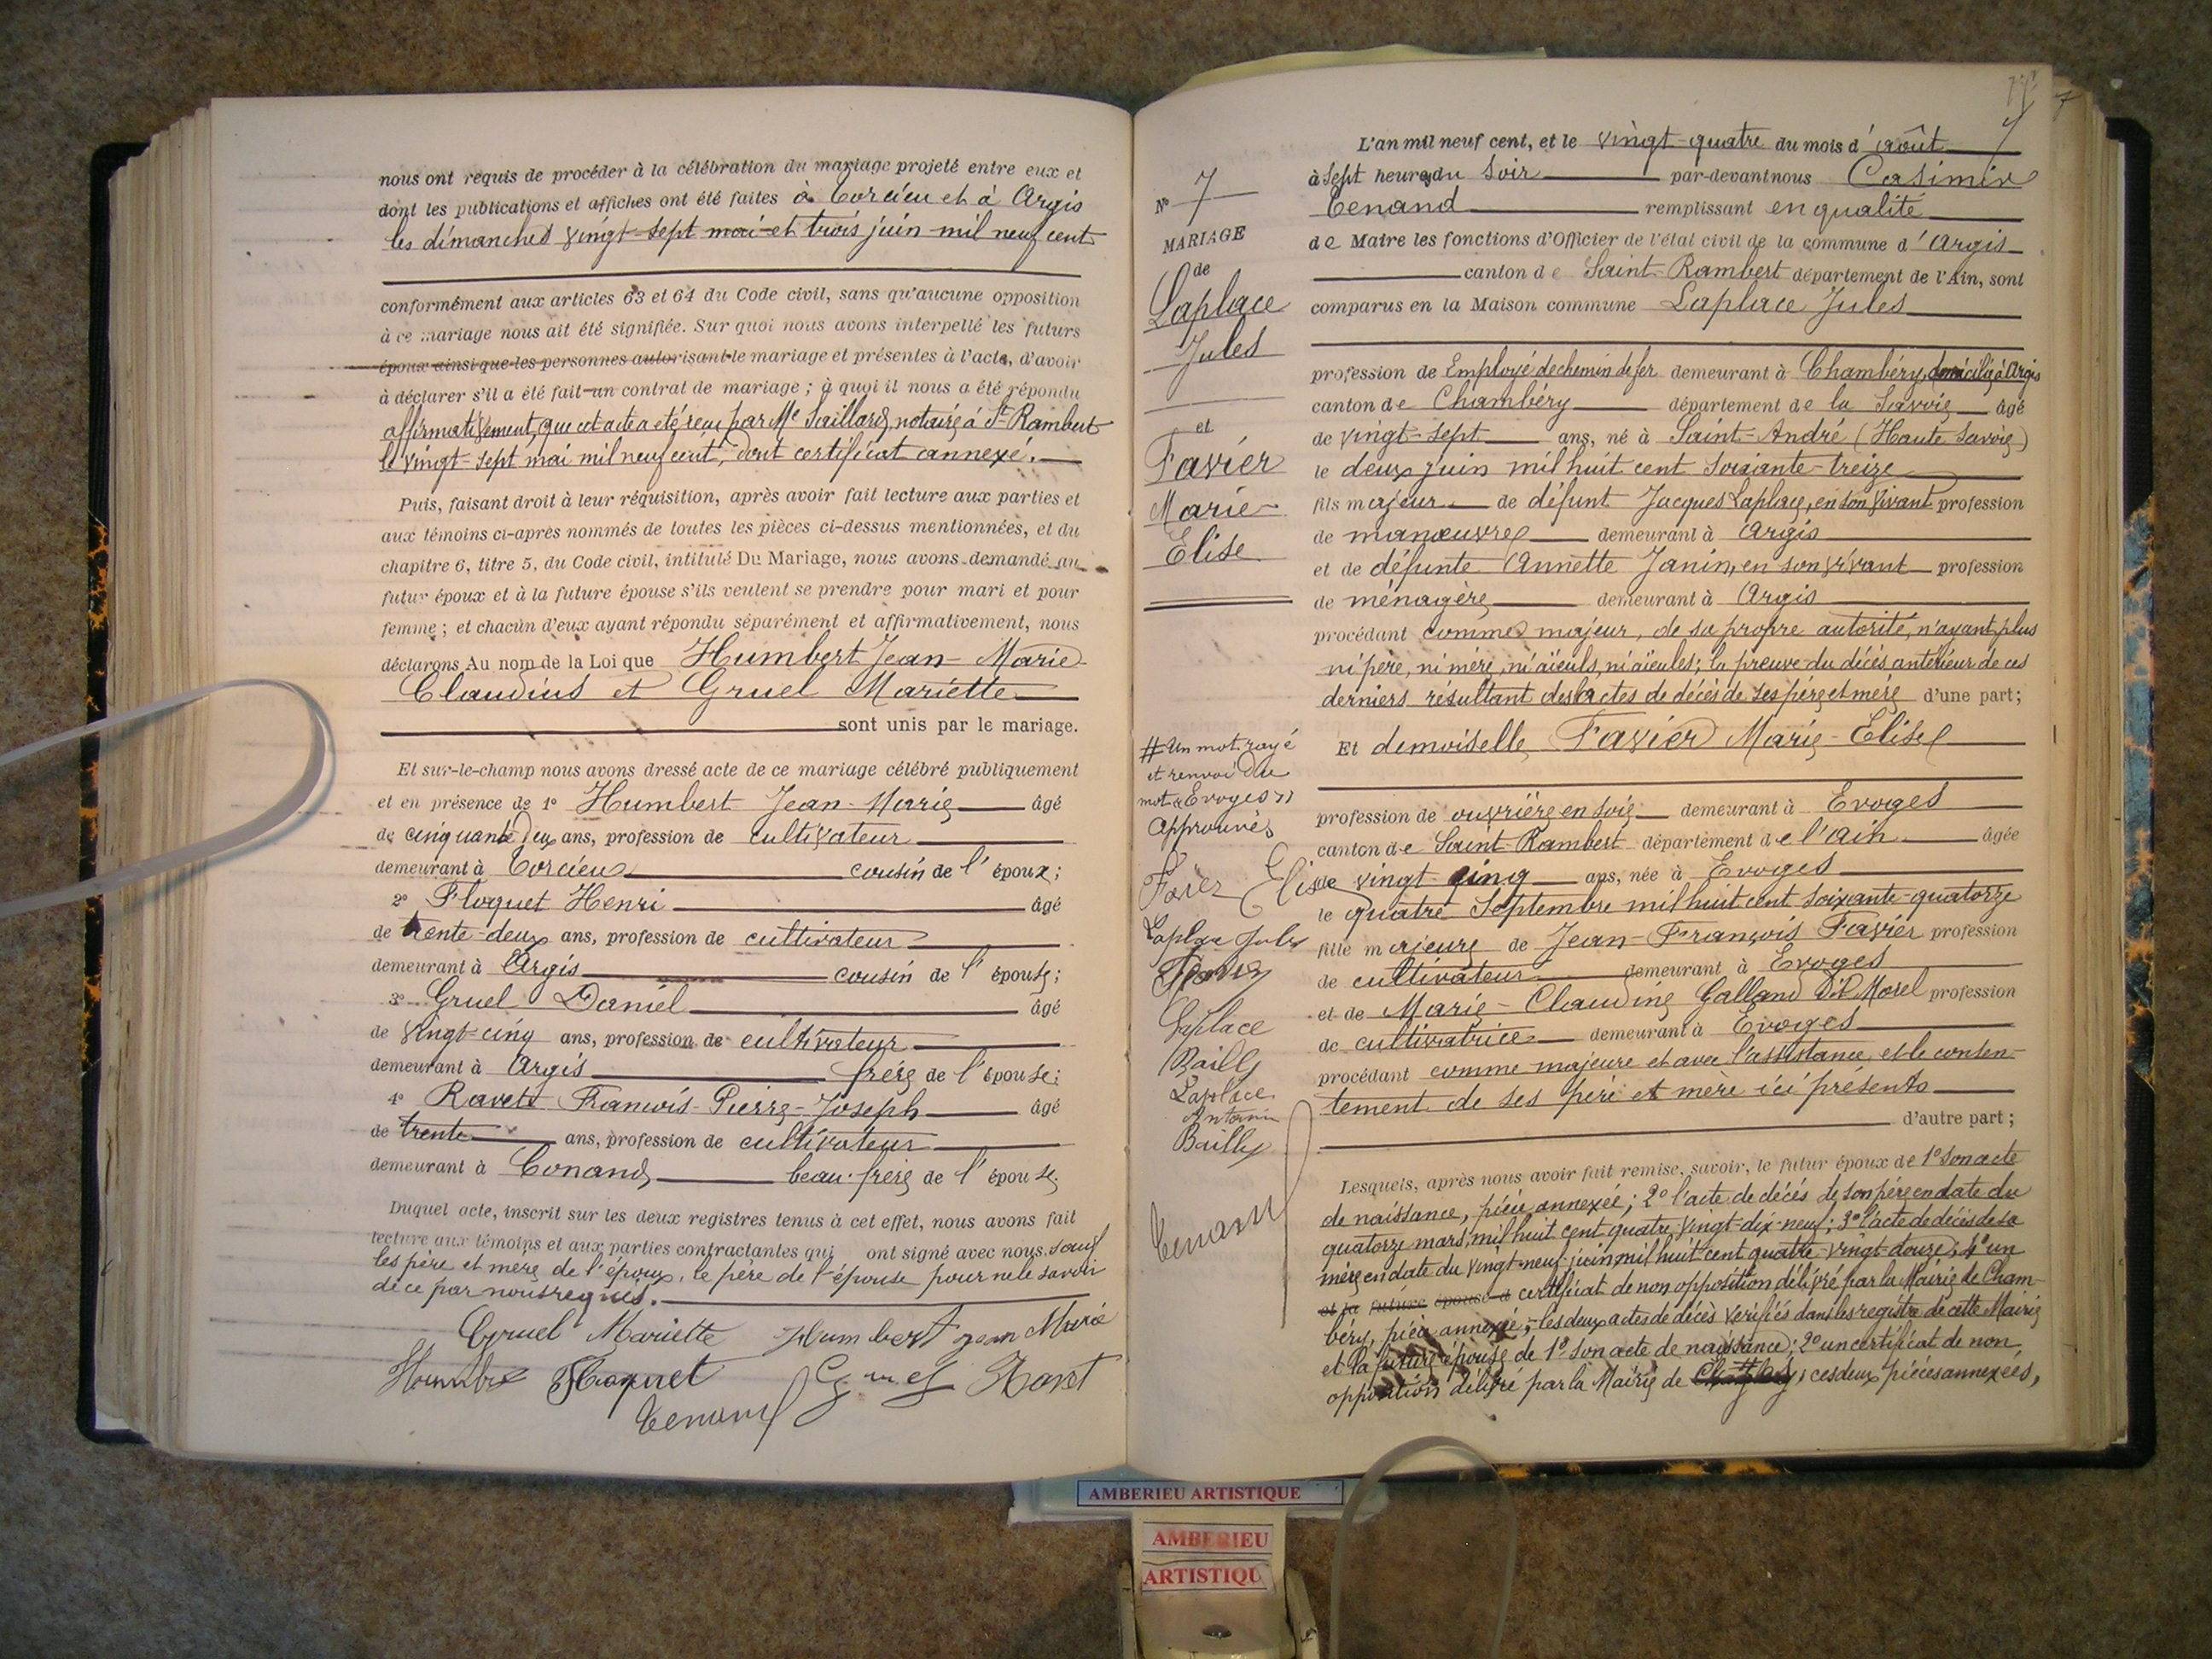 nous ont requis de procéder à la célébration du mariage projeté entre eux et
dont les publications et affiches ont été faites à Torcieu et à Argis
les dimanches vingt-sept mai et trois juin mil neuf cent
conformément aux articles 63 et 64 du Code civil, sans qu'aucune opposition
à ce mariage nous ait été signifiée. Sur quoi nous avons interpellé les futurs
époux ainsi que les personnes autorisant le mariage et présentes à l'acte, d'avoir
à déclarer s'il a été fait un contrat de mariage ; à quoi il nous a été répondu
affirmativement, que cet acte a été reçu par Me Saillard, notaire à St Rambert
le vingt-sept mai mil neuf cent, dont certificat annexé.
Puis, faisant droit à leur réquisition, après avoir fait lecture aux parties et
aux témoins ci-après nommés de toutes les pièces ci-dessus mentionnées, et du
chapitre 6, titre 5, du Code civil, intitulé Du Mariage, nous avons demandé au
futur époux et à la future épouse s'ils veulent se prendre pour mari et pour
femme ; et chacun d'eux ayant répondu séparément et affirmativement, nous
déclarons Au nom de la Loi que Humbert Jean-Marie
Claudius et Gruel Mariette
sont unis par le mariage.
Et sur-le-champ nous avons dressé acte de ce mariage célébré publiquement
et en présence de 1° Humbert Jean-Marie âgé
de cinquante deux ans, profession de cultivateur
demeurant à Torcieu cousin de l'époux ;
2° Floquet Henri âgé
de trente-deux ans, profession de cultivateur
demeurant à Argis cousin de l'épouse ;
3° Gruel Daniel âgé
de vingt-cinq ans, profession de cultivateur
demeurant à Argis frère de l'épouse ;
4° Ravet François-Pierre-Joseph âgé
de trente ans, profession de cultivateur
demeurant à Conand, beau-frère de l'épouse.
Duquel acte, inscrit sur les deux registres tenus à cet effet, nous avons fait
lecture aux témoins et aux parties contractantes qui ont signé avec nous, sauf
les père et mère de l'époux, le père de l'épouse pour ne le savoir
de ce par nous requis.
Gruel Mariette Humbert Jean Marie
Humbert Floquet Gruel Ravet
Tenand
7
L'an mil neuf cent, et le vingt-quatre du mois d'août
à sept heures du soir par-devant nous Casimir
Tenand remplissant en qualité
de Maire les fonctions d'Officier de l'état civil de la commune d'Argis
canton de Saint-Rambert département de l'Ain, sont
comparus en la Maison commune Laplace Jules
profession de Employé de chemin de fer demeurant à Chambéry, domicilié à Argis
canton de Chambéry département de la Savoie âgé
de vingt-sept ans, né à Saint-André (Haute Savoie)
le deux juin mil huit cent soixante-treize
fils majeur de défunt Jacques Laplace, en son vivant profession
de manœuvre demeurant à Argis
et de défunte Annette Janin, en son vivant profession
de ménagère demeurant à Argis
procédant comme majeur, de sa propre autorité, n'ayant plus
ni père, ni mère, ni aïeuls, ni aïeules ; la preuve du décès antérieur de ces
derniers résultant des actes de décès de ses père et mère d'une part ;
Et demoiselle Favier Marie-Elise
profession de ouvrière en soie demeurant à Evoges
canton de Saint-Rambert département de l'Ain âgée
de vingt cinq ans, née à Evoges
le quatre Septembre mil huit cent soixante-quatorze
fille majeure de Jean-François Favier profession
de cultivateur demeurant à Evoges
et de Marie-Claudine Galland dit Morel profession
de cultivatrice demeurant à Evoges
procédant comme majeure et avec l'assistance et le consen-
tement de ses père et mère ici présents
d'autre part ;
Lesquels, après nous avoir fait remise, savoir, le futur époux de 1° son acte
de naissance, pièce annexée ; 2° l'acte de décès de son père en date du
quatorze mars mil huit cent quatre vingt-dix-neuf ; 3° l'acte de décès de sa
mère en date du vingt-neuf juin mil huit cent quatre-vingt-douze ; 4° un
et la future épouse d certificat de non opposition délivré par la Mairie de Cham-
béry, pièce annexée ; les deux actes de décès vérifiés dans les registres de cette Mairie
et la future épouse de 1° son acte de naissance ; 2° un certificat de non
opposition délivré par la Mairie de # ; ces deux pièces annexées,
No 7
MARIAGE
de
Laplace
Jules
et
Favier
Marie
Elise
# Un mot rayé
et renvoi du
mot « Evoges »
approuvés
Favier Elise
Laplace Jules
Favier
Laplace
Bailly
Laplace
Antonin
Bailly
Tenand
AMBERIEU ARTISTIQUE
AMBERIEU
ARTISTIQU